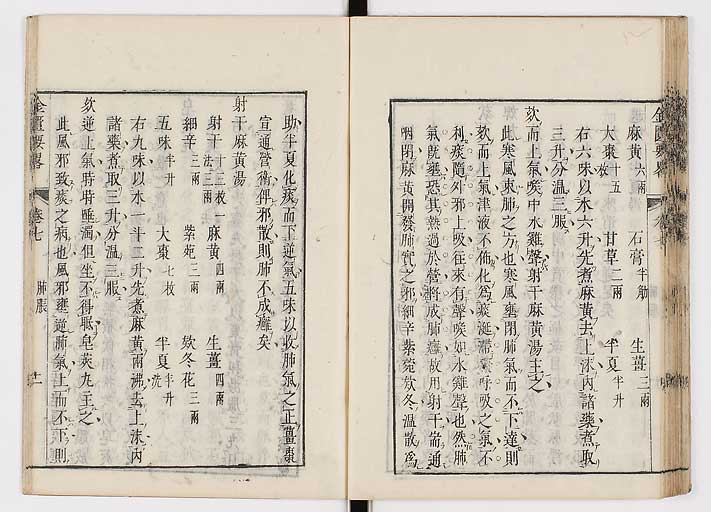 麻黃六兩 石膏半觔 生薑三兩
大棗十五枚 甘草二兩 半夏半升
右六味以水六升先煮麻黃去上沫內諸藥煮取
三升分溫三服
欬而上氣喉中水雞聲射干麻黃湯主之
此寒風束肺之方也寒風壅閉肺氣而不下達則
欬而上氣津液不佈化為痰涎滯呼吸之氣不
利痰隨外邪上吸往來有聲喉如水雞聲也然肺
氣旣壅恐其熱過於營將成肺癰故用射干耑通
咽閉麻黃開發肺實之邪細辛紫菀欵冬溫散為
助半夏化痰而下逆氣五味以收肺氣之正薑棗
宣通營衛俾邪散則肺不成癰矣
射干麻黃湯
射干十三枚一法三兩 麻黃四兩 生薑四兩
細辛三兩 紫菀三兩 欵冬花三兩
五味半升 大棗七枚 半夏半升洗
右九味以水一斗二升先煮麻黃兩沸去上沫內
諸藥煮取三升分溫三服
欬逆上氣時時唾濁但坐不得眠皂莢丸主之
此風邪致痰之病也風邪壅逆肺氣上而不下則
金匱要畧 卷七 肺脹